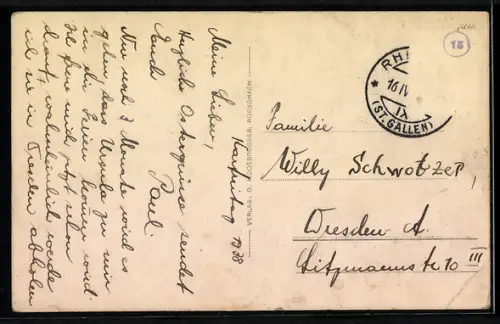 Karfreitag 1938
Meine Lieben,
Herzliche Ostergrüsse sendet
Euch Paul.
Nur noch 3 Monate wird es
gehen, dass Ursula zu mir
in die Ferien kommen wird.
Ich freue mich jetzt schon
darauf, wahrscheinlich werde
ich sie in Dresden abholen
VERLAG: O. RORSCHACH
15
RH
16 IV
IX
(ST. GALLEN)
Familie
Willy Schwotzer,
Dresden A.
10 III